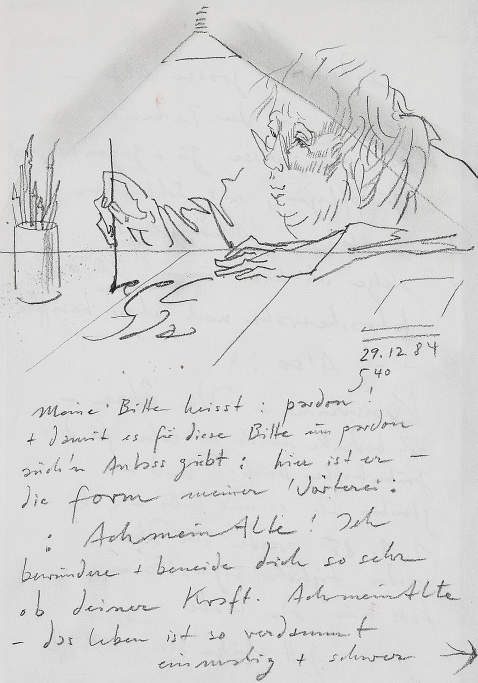 29.12.84
5 40
Meine Bitte heisst: pardon!
+ damit es für diese Bitte um pardon
auch'n Anlass giebt: hier ist er –
die form meiner Wörterei:
: AchmeinAlte! Ich
bewundere + beneide dich so sehr
ob deiner Kraft. AchmeinAlte
– das leben ist so verdammt
einmalig + schwer →